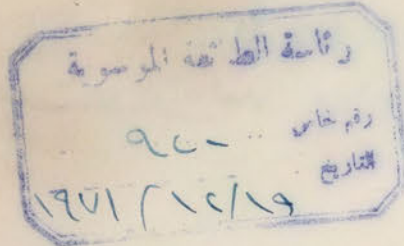 رئاسة الطائفة الموسوية
رقم خاص ٩٤٠
التاريخ ١٩٧١/١٢/١٩